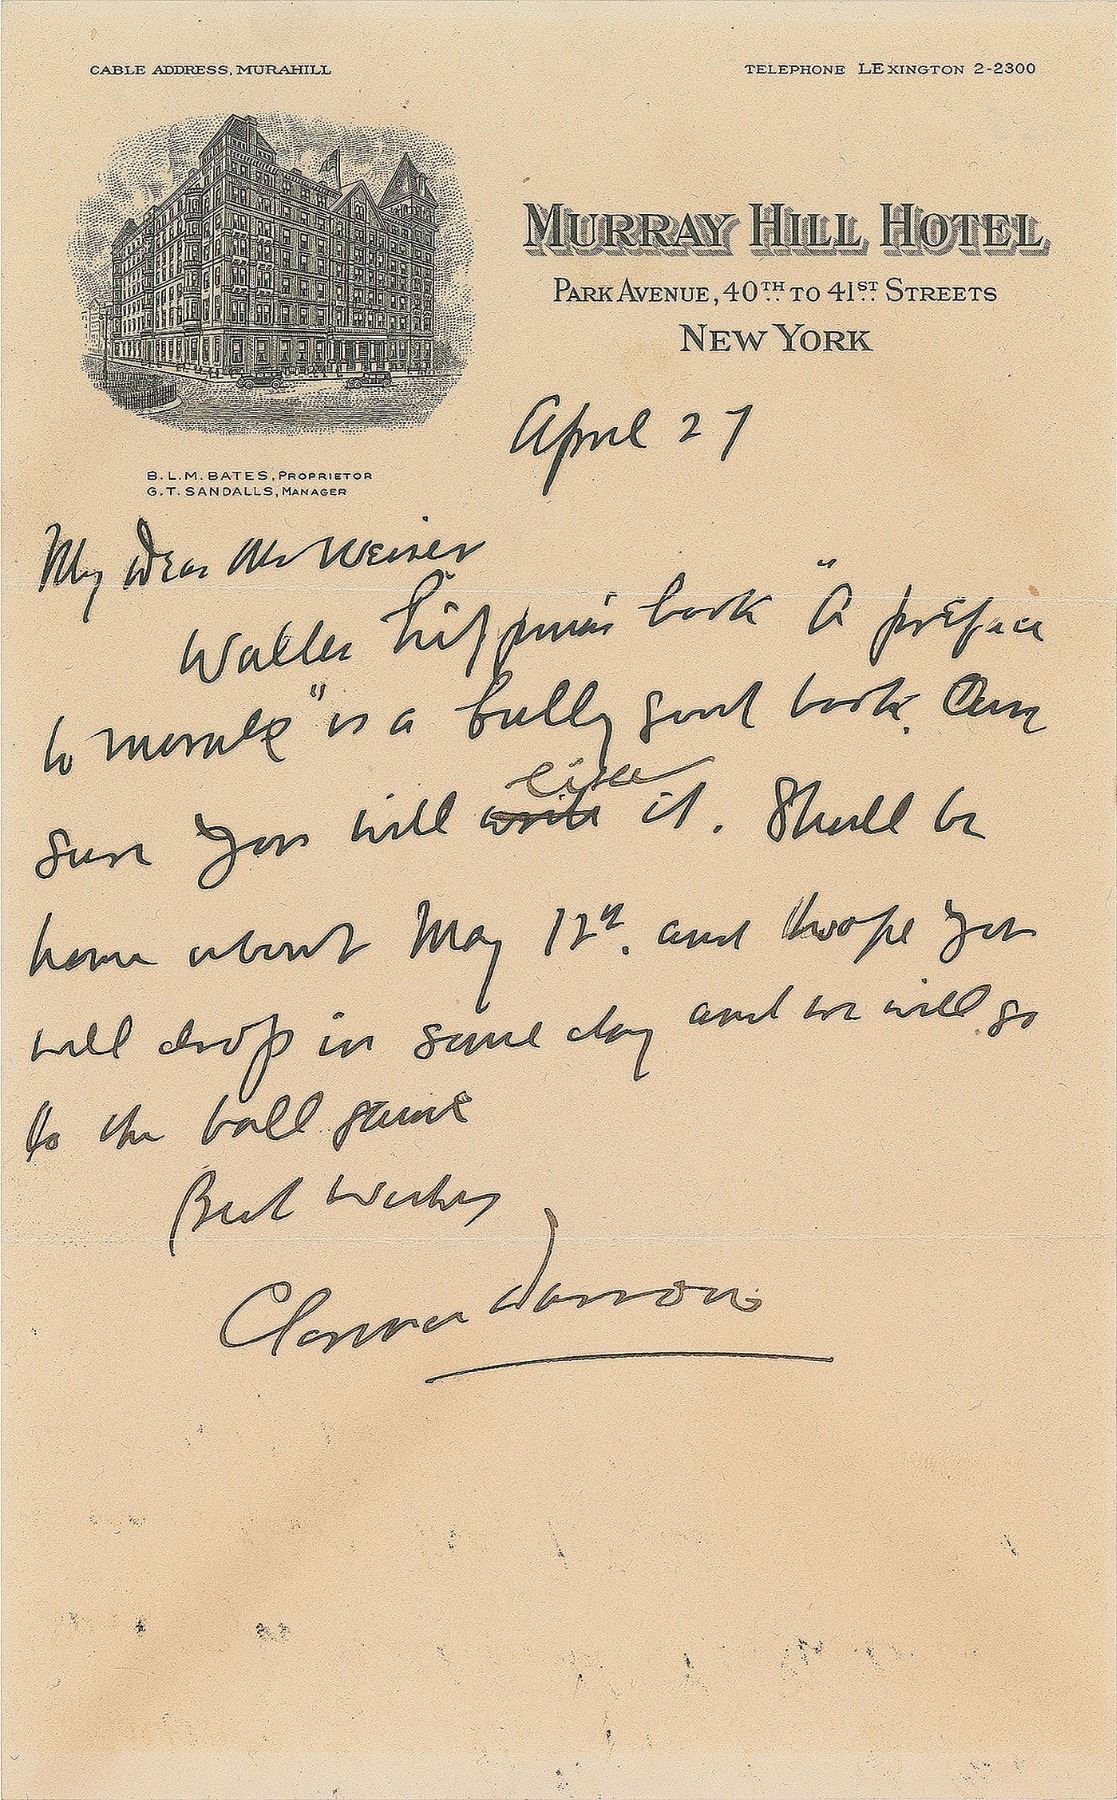 CABLE ADDRESS, MURAHILL
TELEPHONE LEXINGTON 2-2300
MURRAY HILL HOTEL
PARK AVENUE, 40TH TO 41ST STREETS
NEW YORK
B.L.M. BATES, PROPRIETOR
G.T. SANDALLS, MANAGER
April 27
My Dear Mr Weiner
Walter Lippman's book "A preface
to morals" is a bully good book. Am
like
sure you will write it. Shall be
home about May 12th. and hope you
will drop in some day and we will go
to the ball game
Best Wishes
Clarence Darrow